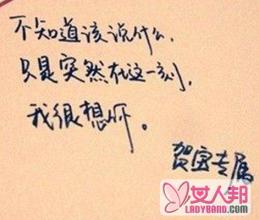 不知道该说什么,
只是突然在这一刻,
我很想你。
贺宝专属
女人邦
LADYBANG.COM